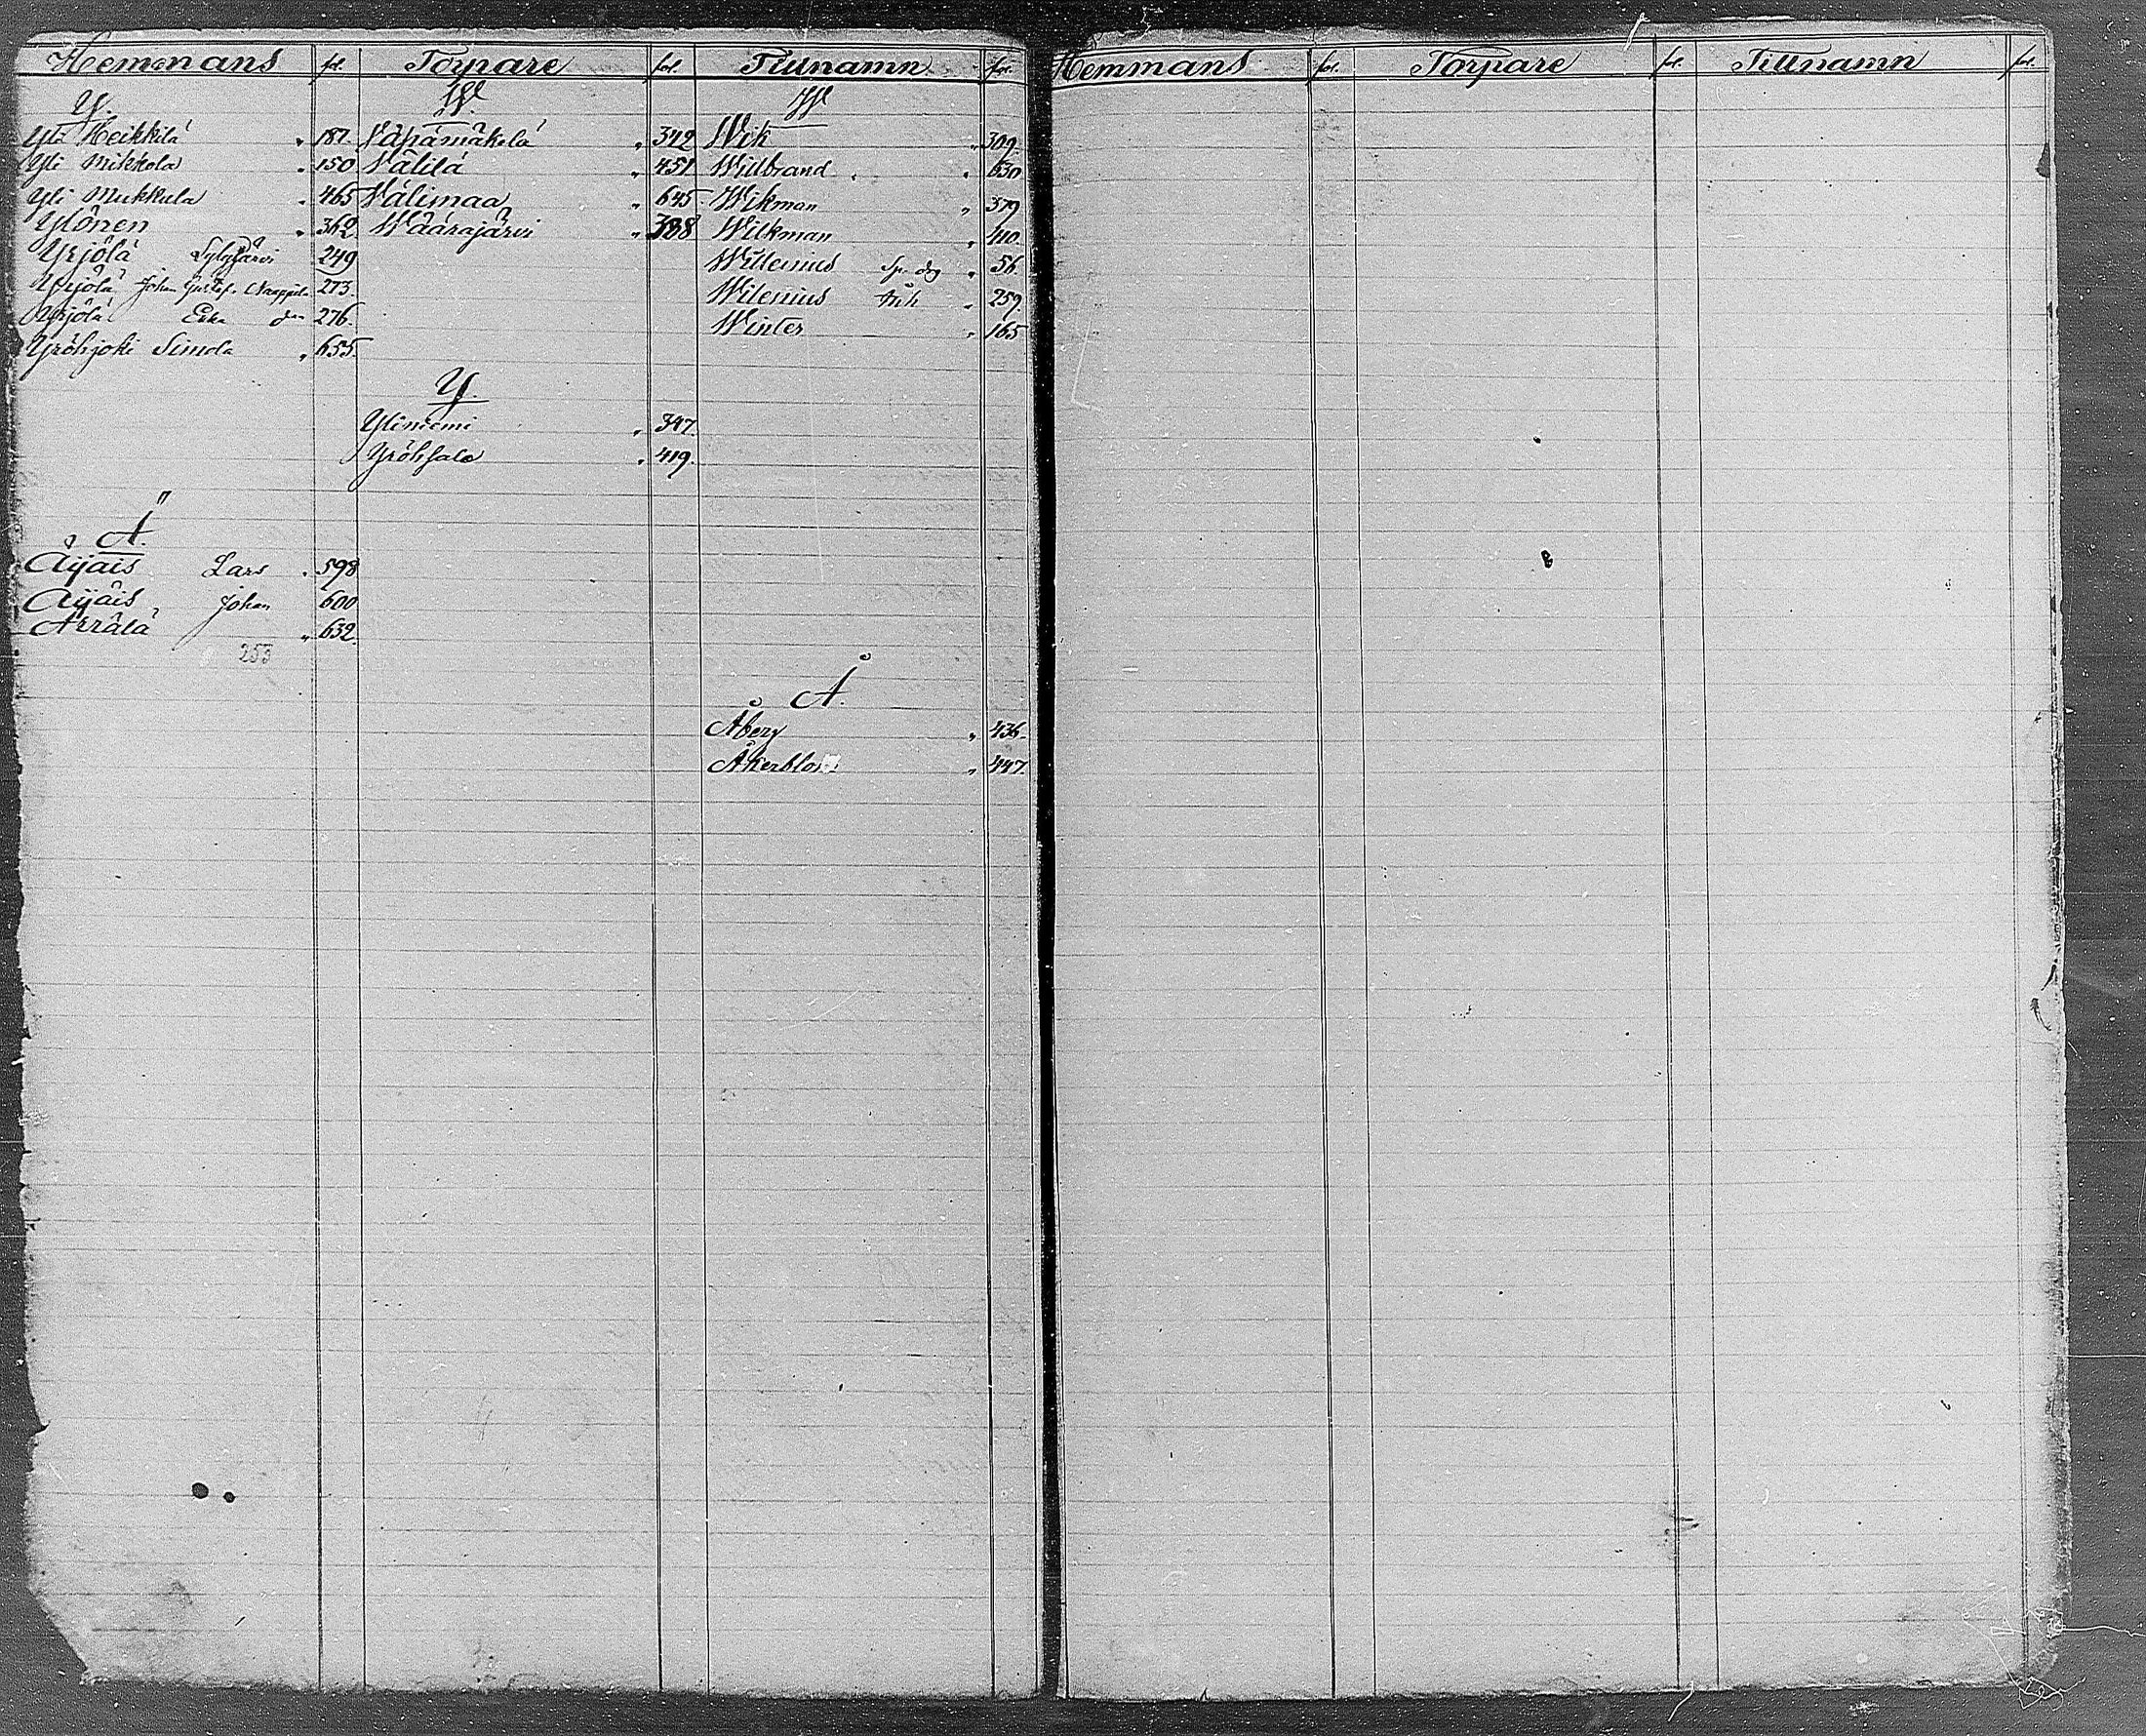 Hemmans fol. Torpare fol. Tillnamn fol. Hemmans fol. Torpare fol. Tillnamn fol.
Y. W. W
Yli Heikkilä " 187. Wäpämäkelä " 342 Wik " 309.
Yli Mikkola " 150 Wälilä " 451 Willbrand " 630
Yli Mukkula " 465 Wälimaa " 645 Wikman " 379
Ylönen " 362 Wäärajärvi " 388 Wilkman " 410.
Yrjölä Sylyjärvi 249 Willenius Sp. drg " 56.
Yrjölä Johan Gustaf. Naappila 273 Wilenius " 259.
Yrjölä Erka do 276. Winter " 165
Yröhjoki Simola " 655.
Y.
Yliniemi " 347.
Yröhsalo " 419.
Ä.
Äijäis Lars " 598
Äijäis Johan 600
Ärrälä " 632.
253
Å.
Åberg " 436.
Åkerblom " 447.